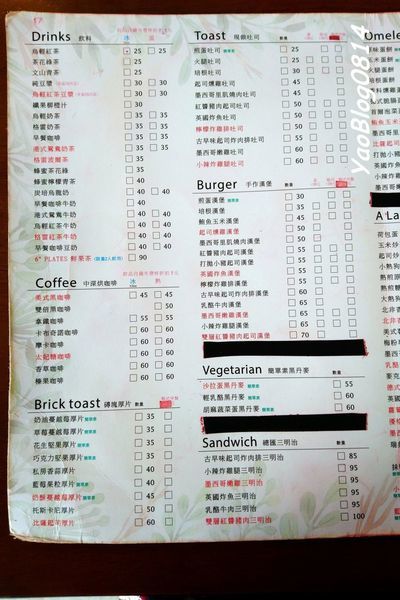 Drinks 飲料 冰 溫
烏輕紅茶 25 25
茶花綠茶 25
文山青茶 25
純豆漿 30 30
烏輕紅茶豆漿 30 30
纖果檸檬汁 30
烏輕奶茶 35 35
格雷奶茶 35 35
早餐咖啡 35 35
港式鴛鴦奶茶 35 35
格雷波爾茶 35
蜂蜜茶花綠 35
蜂蜜檸檬青茶 40
炭培烏龍奶 40 40
早餐咖啡牛奶 40
港式鴛鴦牛奶 40 40
烏輕紅茶牛奶 40 40
格雷紅茶牛奶 40 40
早餐咖啡豆奶 40 40
6" PLATES 鮮果茶 90
Coffee 中深烘咖啡 冰 熱
美式黑咖啡 45 45
雙倍黑咖啡 50
拿鐵咖啡 55 55
卡布奇諾咖啡 60 60
摩卡咖啡 60 60
太妃糖咖啡 60 60
香草咖啡 60 60
榛果咖啡 60 60
Brick toast 磚塊厚片 數量
奶油蔓越莓厚片 35
草莓蔓越莓厚片 35
花生堅果厚片 35
巧克力堅果厚片 35
私房香蒜厚片 40
藍莓果粒厚片 40
奶酥蔓越莓厚片 45
托斯卡尼厚片 50
比薩起司厚片 60
Toast 現做吐司 數量
煎蛋吐司 25
火腿吐司 25
培根吐司 30
起司燻雞吐司 45
墨西哥里肌燒肉吐司 45
紅醬豬肉起司吐司 50
英國炸魚吐司 50
檸檬炸雞排吐司 50
古早味起司炸肉排吐司 50
墨西哥嫩雞吐司 50
小辣炸雞腿吐司 60
Burger 手作漢堡 數量
煎蛋漢堡 30
培根漢堡 35
鮪魚玉米漢堡 45
起司燻雞漢堡 50
墨西哥里肌燒肉漢堡 50
紅醬豬肉起司漢堡 55
打拋小豬起司漢堡 55
英國炸魚漢堡 55
檸檬炸雞排漢堡 55
古早味起司炸肉排漢堡 60
乳酪牛肉漢堡 60
墨西哥嫩雞漢堡 65
小辣炸雞腿漢堡 65
雙層紅醬豬肉起司漢堡 70
Vegetarian 簡單素黑丹麥 數量
沙拉蛋黑丹麥 55
輕乳酪黑丹麥 60
胡麻蔬菜蛋黑丹麥 60
Sandwich 總匯三明治 數量
古早味起司炸肉排三明治 85
小辣炸雞腿三明治 95
墨西哥嫩雞三明治 95
英國炸魚三明治 95
乳酪牛肉三明治 95
雙層紅醬豬肉三明治 100
YaoBlog0814